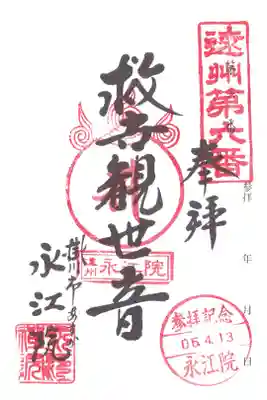 遠州第六番
奉拝
参拝 年 月 日
救世観世音
遠州 永江院
掛川市
永江院
参拝記念
06.4.13
永江院